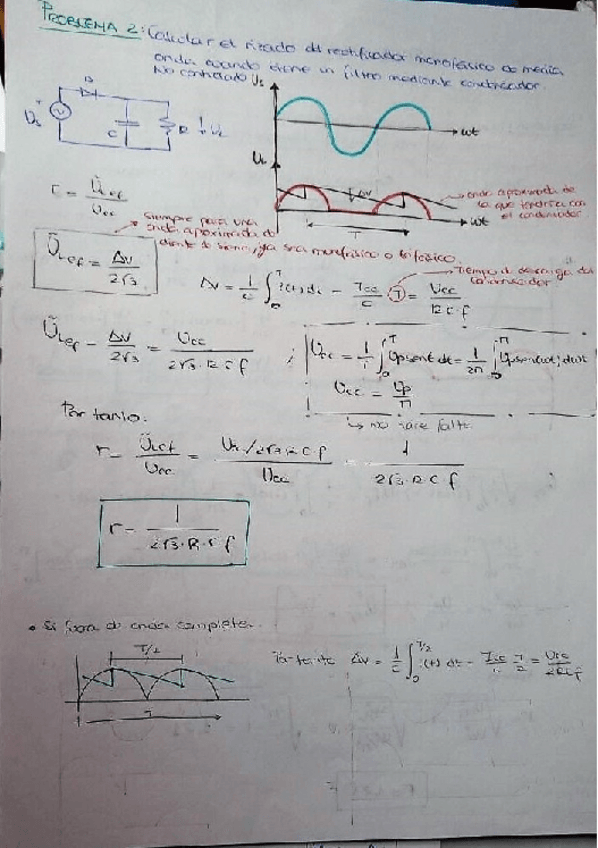 PROBLEMA 2: Calcular el rizado del rectificador monofásico de media
onda cuando tiene un filtro mediante condensador.
No controlado
D
Us
C
R
UL
Us
wt
UL
ΔV
wt
T
onda aproximada de
la que tendría con
el condensador
r = ŨLef / Ucc
siempre para una
onda aproximada de
diente de sierra, ya sea monofásico o trifásico.
ŨLef = ΔV / 2√3
ΔV = 1/C ∫₀ᵀ i(t) dt = Icc/C · T = Ucc / R·C·f
Tiempo de descarga del
condensador
ŨLef = ΔV / 2√3 = Ucc / 2√3·R·C·f ;
Ucc = 1/T ∫₀ᵀ Up sent dt = 1/2π ∫₀^π Up sen(wt) dwt
Ucc = Up/π
↳ no hace falta.
Por tanto:
r = ŨLef / Ucc = Ucc/2√3·R·C·f / Ucc = 1 / 2√3·R·C·f
r = 1 / 2√3·R·C·f
• Si fuera de onda completa.
T/2
T
Por tanto ΔV = 1/C ∫₀^T/2 i(t) dt = Icc/C · T/2 = Ucc / 2RCf